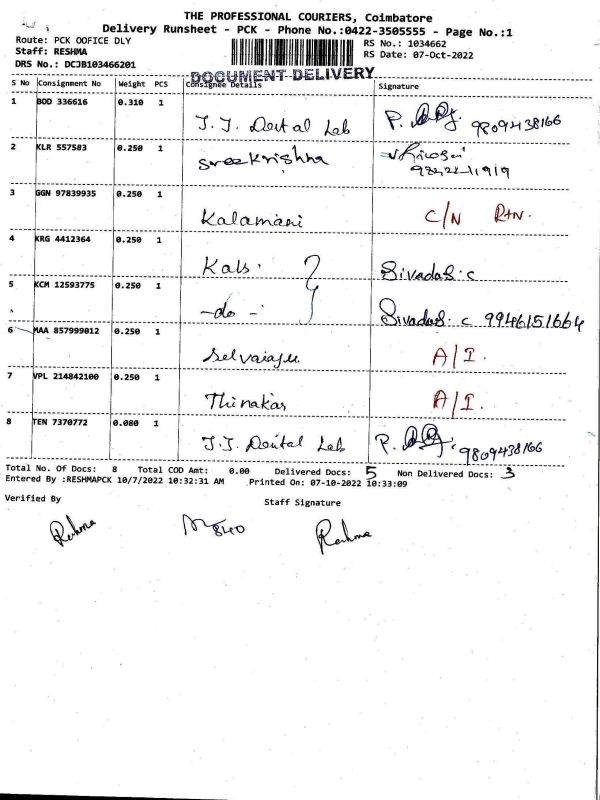 THE PROFESSIONAL COURIERS, Coimbatore
Delivery Runsheet - PCK - Phone No.:0422-3505555 - Page No.:1
Route: PCK OOFICE DLY
RS No.: 1034662
Staff: RESHMA
RS Date: 07-Oct-2022
DRS No.: DCJB103466201
DOCUMENT DELIVERY
S No Consignment No Weight PCS Consignee Details Signature
1 BOD 336616 0.310 1
J.J. Dental Lab P. 9809438166
2 KLR 557583 0.250 1
Sreekrishna
3 GGN 97839935 0.250 1
Kalamani C/N Rtn.
4 KRG 4412364 0.250 1
Kals. Sivadas.c
5 KCM 12593775 0.250 1
-do- Sivadas. c 9946151664
6 MAA 857999012 0.250 1
Selvaraju A/I.
7 VPL 214842100 0.250 1
Thinakar A/I.
8 TEN 7370772 0.080 1
J.J. Dental Lab P. 9809438166
Total No. Of Docs: 8 Total COD Amt: 0.00 Delivered Docs: 5 Non Delivered Docs: 3
Entered By :RESHMAPCK 10/7/2022 10:32:31 AM Printed On: 07-10-2022 10:33:09
Verified By Staff Signature
Reshma 840 Reshma